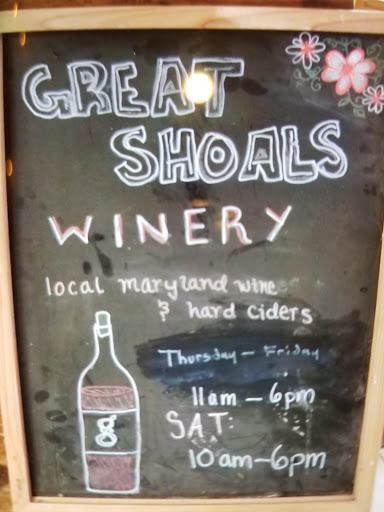 GREAT
SHOALS
WINERY
local maryland wine
& hard ciders
Thursday – Friday
11am – 6pm
SAT:
10am – 6pm
g